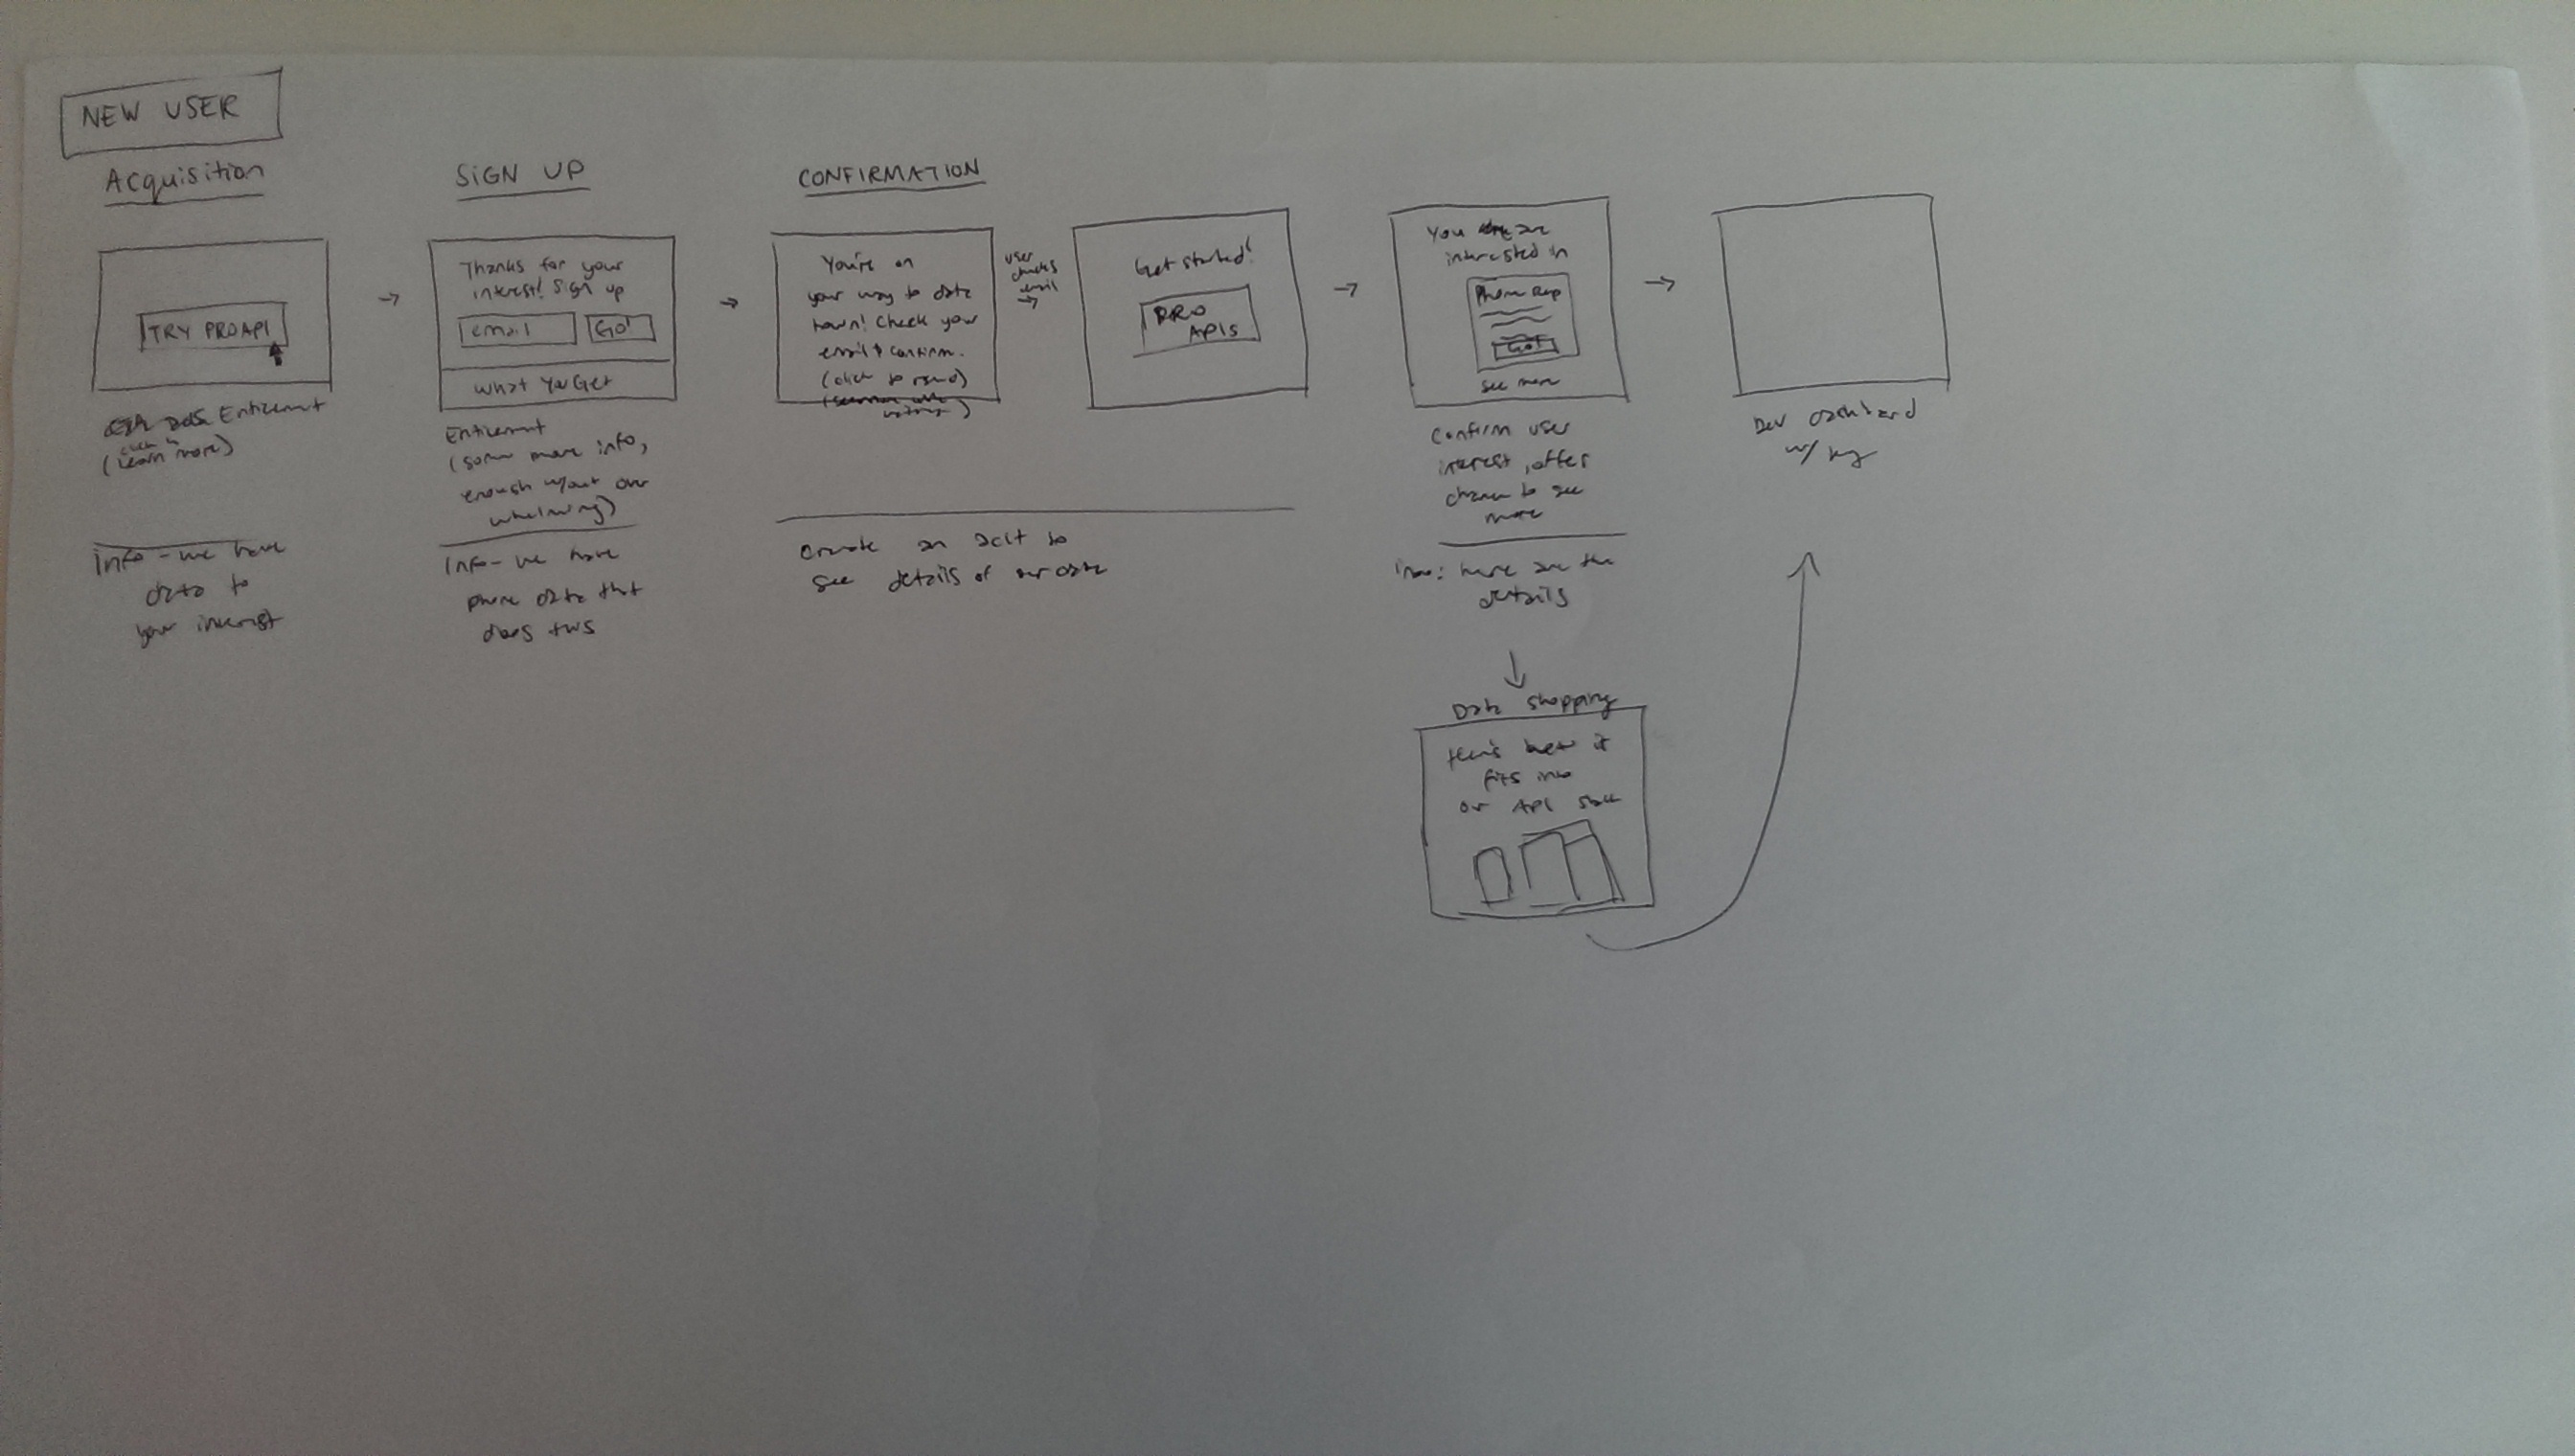 NEW USER
Acquisition
TRY PROAPI
Enticement
(click to
learn more)
Info - we have
data to
your interest
SIGN UP
Thanks for your
interest! Sign up
email
Go!
What You Get
Enticement
(some more info,
enough w/out over
whelming)
Info - we have
phone data that
does this
CONFIRMATION
You're on
your way to data
town! Check your
email & confirm.
(click to resend)
user
checks
email
Get started!
PRO
APIs
Create an acct to
see details of our data
You are
interested in
Phone Rep
GO!
see more
Confirm user
interest, offer
chance to see
more
Info: here are the
details
Data shopping
Here's how it
fits into
our API
Dev Dashboard
w/ key